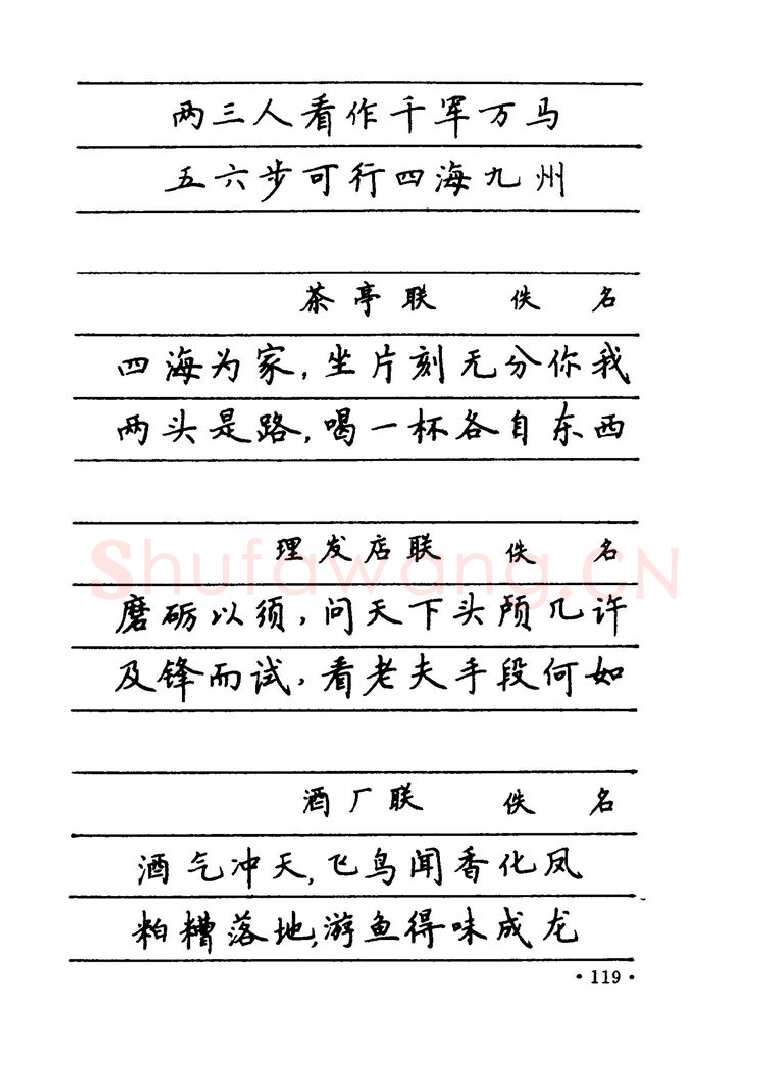 两三人看作千军万马
五六步可行四海九州
茶亭联 佚名
四海为家,坐片刻无分你我
两头是路,喝一杯各自东西
理发店联 佚名
磨砺以须,问天下头颅几许
及锋而试,看老夫手段何如
酒厂联 佚名
酒气冲天,飞鸟闻香化凤
粕糟落地,游鱼得味成龙
·119·
Shufawang.CN